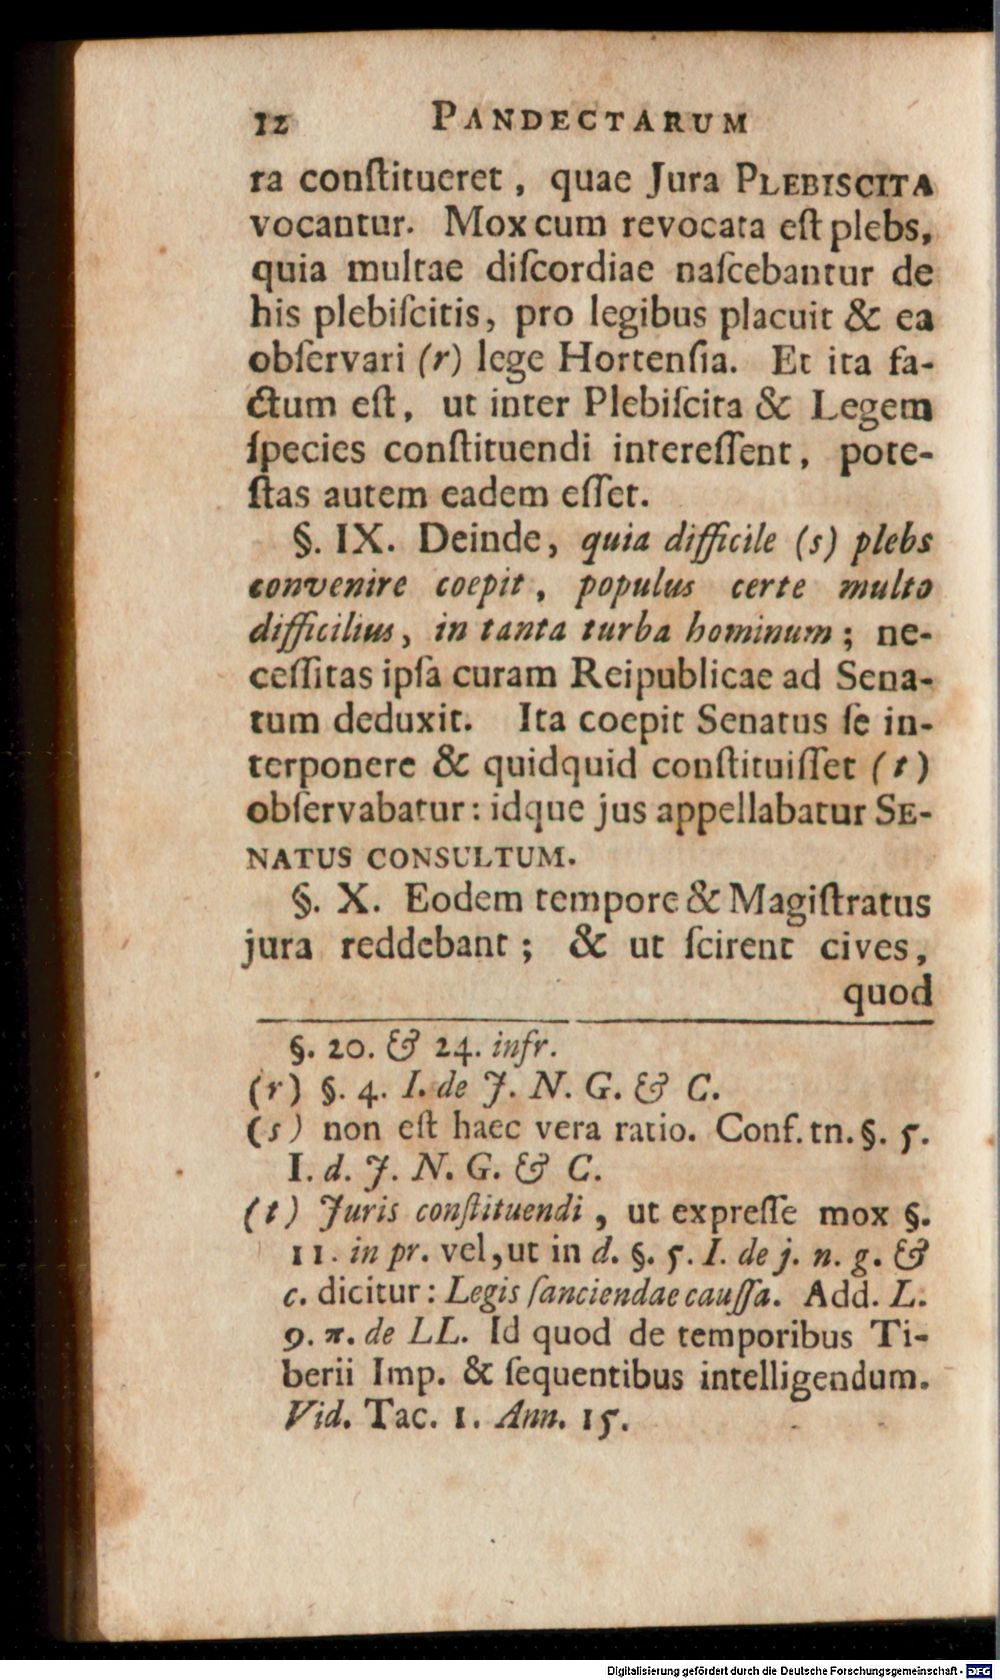 12 PANDECTARUM
ra conſtitueret, quae Jura PLEBISCITA
vocantur. Mox cum revocata eſt plebs,
quia multae diſcordiae naſcebantur de
his plebiſcitis, pro legibus placuit & ea
obſervari (r) lege Hortenſia. Et ita fa-
ctum eſt, ut inter Plebiſcita & Legem
ſpecies conſtituendi intereſſent, pote-
ſtas autem eadem eſſet.
§. IX. Deinde, quia difficile (s) plebs
convenire coepit, populus certe multo
difficilius, in tanta turba hominum; ne-
ceſſitas ipſa curam Reipublicae ad Sena-
tum deduxit. Ita coepit Senatus ſe in-
terponere & quidquid conſtituiſſet (t)
obſervabatur: idque jus appellabatur SE-
NATUS CONSULTUM.
§. X. Eodem tempore & Magiſtratus
jura reddebant; & ut ſcirent cives,
quod
§. 20. & 24. infr.
(r) §. 4. I. de J. N. G. & C.
(s) non eſt haec vera ratio. Conf. tn. §. 5.
I. d. J. N. G. & C.
(t) Juris conſtituendi, ut expreſſe mox §.
11. in pr. vel, ut in d. §. 5. I. de j. n. g. &
c. dicitur: Legis ſanciendae cauſſa. Add. L.
9. π. de LL. Id quod de temporibus Ti-
berii Imp. & ſequentibus intelligendum.
Vid. Tac. 1. Ann. 15.
Digitalisierung gefördert durch die Deutsche Forschungsgemeinschaft - DFG